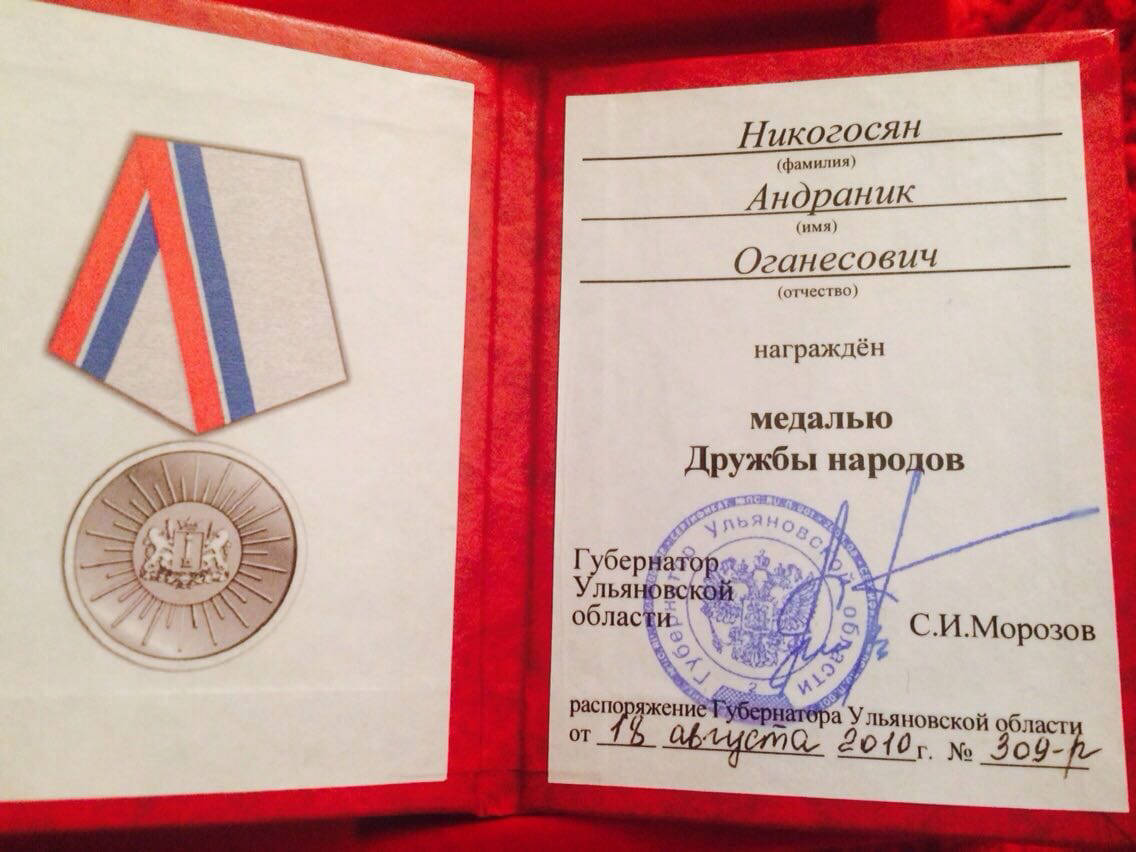 Никогосян
(фамилия)
Андраник
(имя)
Оганесович
(отчество)
награждён
медалью
Дружбы народов
Губернатор
Ульяновской
области
С.И.Морозов
Губернатор Ульяновской области
2
распоряжение Губернатора Ульяновской области
от 18 августа 2010 г. № 309-р